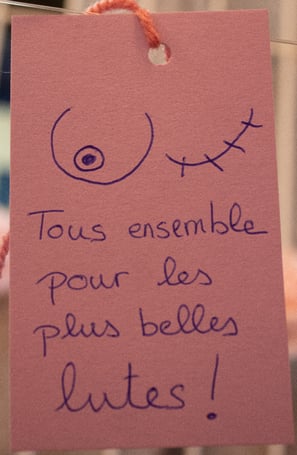 Tous ensemble
pour les
plus belles
lutes !